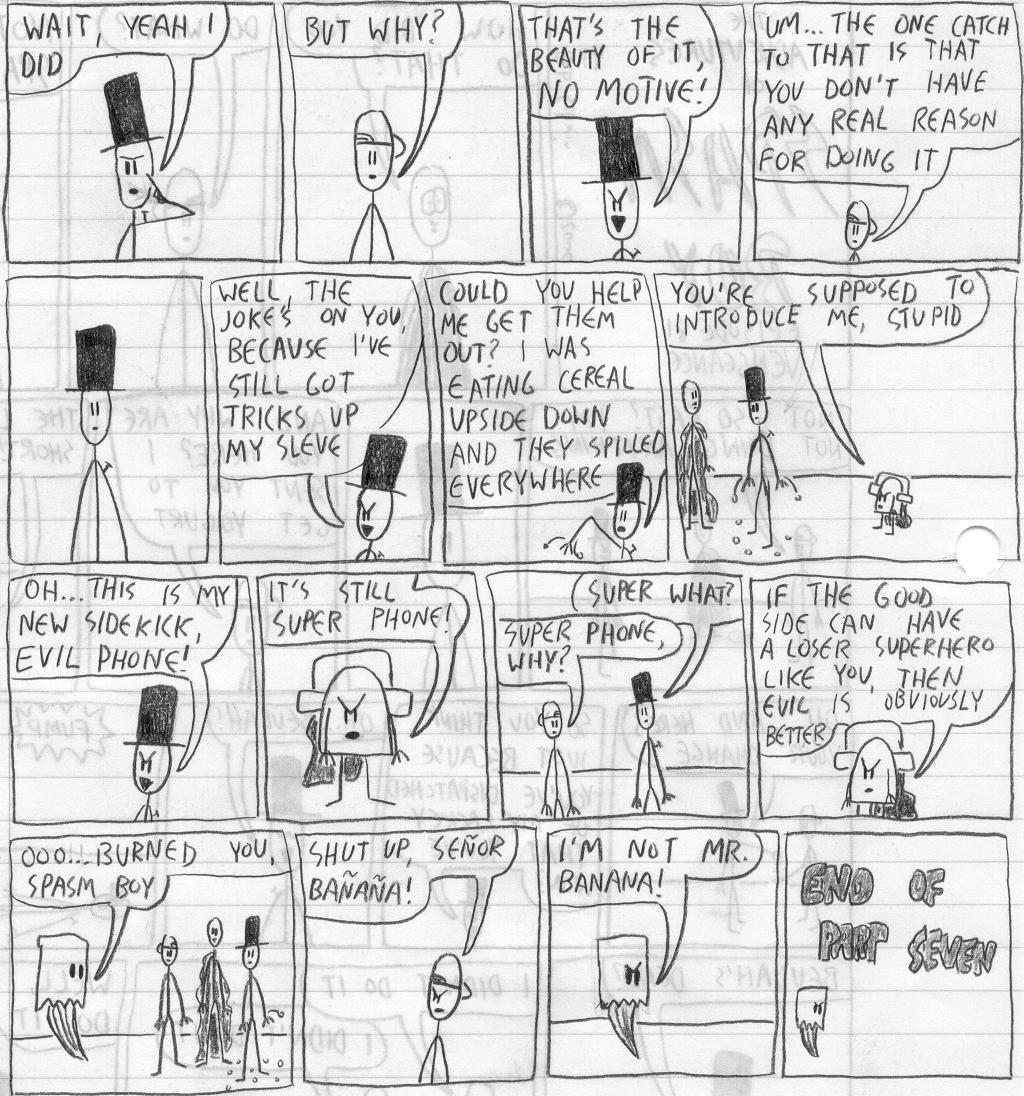 WAIT, YEAH I
DID
BUT WHY?
THAT'S THE
BEAUTY OF IT,
NO MOTIVE!
UM... THE ONE CATCH
TO THAT IS THAT
YOU DON'T HAVE
ANY REAL REASON
FOR DOING IT
WELL, THE
JOKE'S ON YOU,
BECAUSE I'VE
STILL GOT
TRICKS UP
MY SLEVE
COULD YOU HELP
ME GET THEM
OUT? I WAS
EATING CEREAL
UPSIDE DOWN
AND THEY SPILLED
EVERYWHERE
YOU'RE SUPPOSED TO
INTRODUCE ME, STUPID
OH... THIS IS MY
NEW SIDEKICK,
EVIL PHONE!
IT'S STILL
SUPER PHONE!
SUPER WHAT?
SUPER PHONE,
WHY?
IF THE GOOD
SIDE CAN HAVE
A LOSER SUPERHERO
LIKE YOU, THEN
EVIL IS OBVIOUSLY
BETTER
OOO... BURNED YOU,
SPASM BOY
SHUT UP, SEÑOR
BAÑAÑA!
I'M NOT MR.
BANANA!
END OF
PART SEVEN